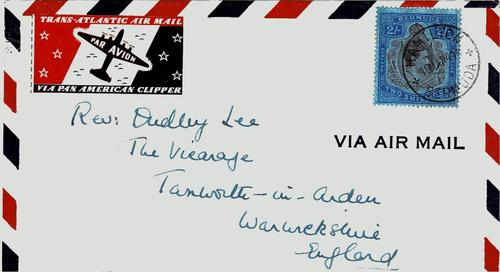 TRANS-ATLANTIC AIR MAIL
PAR AVION
VIA PAN AMERICAN CLIPPER
BERMUDA
2/-
2/-
HAMILTON
BERMUDA
TWO SHILLINGS
Rev: Dudley Lee
The Vicarage
VIA AIR MAIL
Tanworth-in-Arden
Warwickshire
England